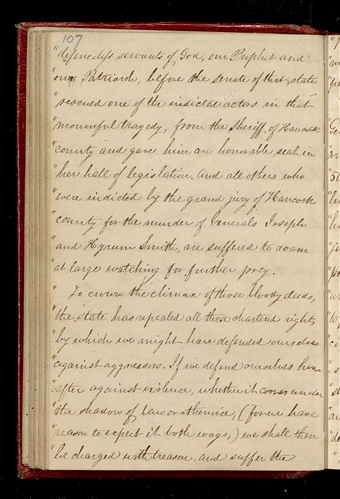 107
"defenceless servants of God, our Prophet and
"our Patriarch, before the senate of that state
"rescued one of the indicted actors in that
"mournful tragedy, from the Sheriff of Hancock
"county and gave him an honorable seat in
"her hall of legislation. And all others who
"were indicted by the grand jury of Hancock
"county for the murder of Generals Joseph
"and Hyrum Smith, are suffered to roam
"at large watching for further prey.
"To crown the climax of those bloody deeds,
"the state has repealed all those chartered rights
"by which we might have defended ourselves
"against aggressors. If we defend ourselves here
"after against violence, whether it comes under
"the shadow of law or otherwise, (for we have
"reason to expect it both ways,) we shall then
"be charged with treason and suffer the